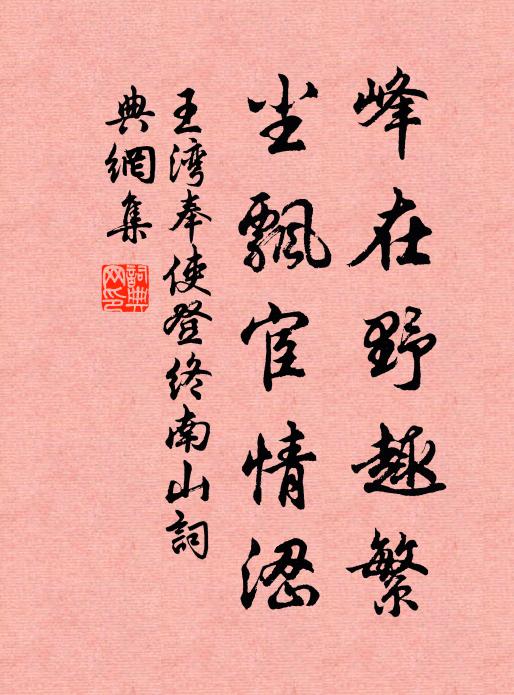 峰在野趣繁
尘飘宦情涩
王湾奉使登终南山詞
典網集
詞典
网印